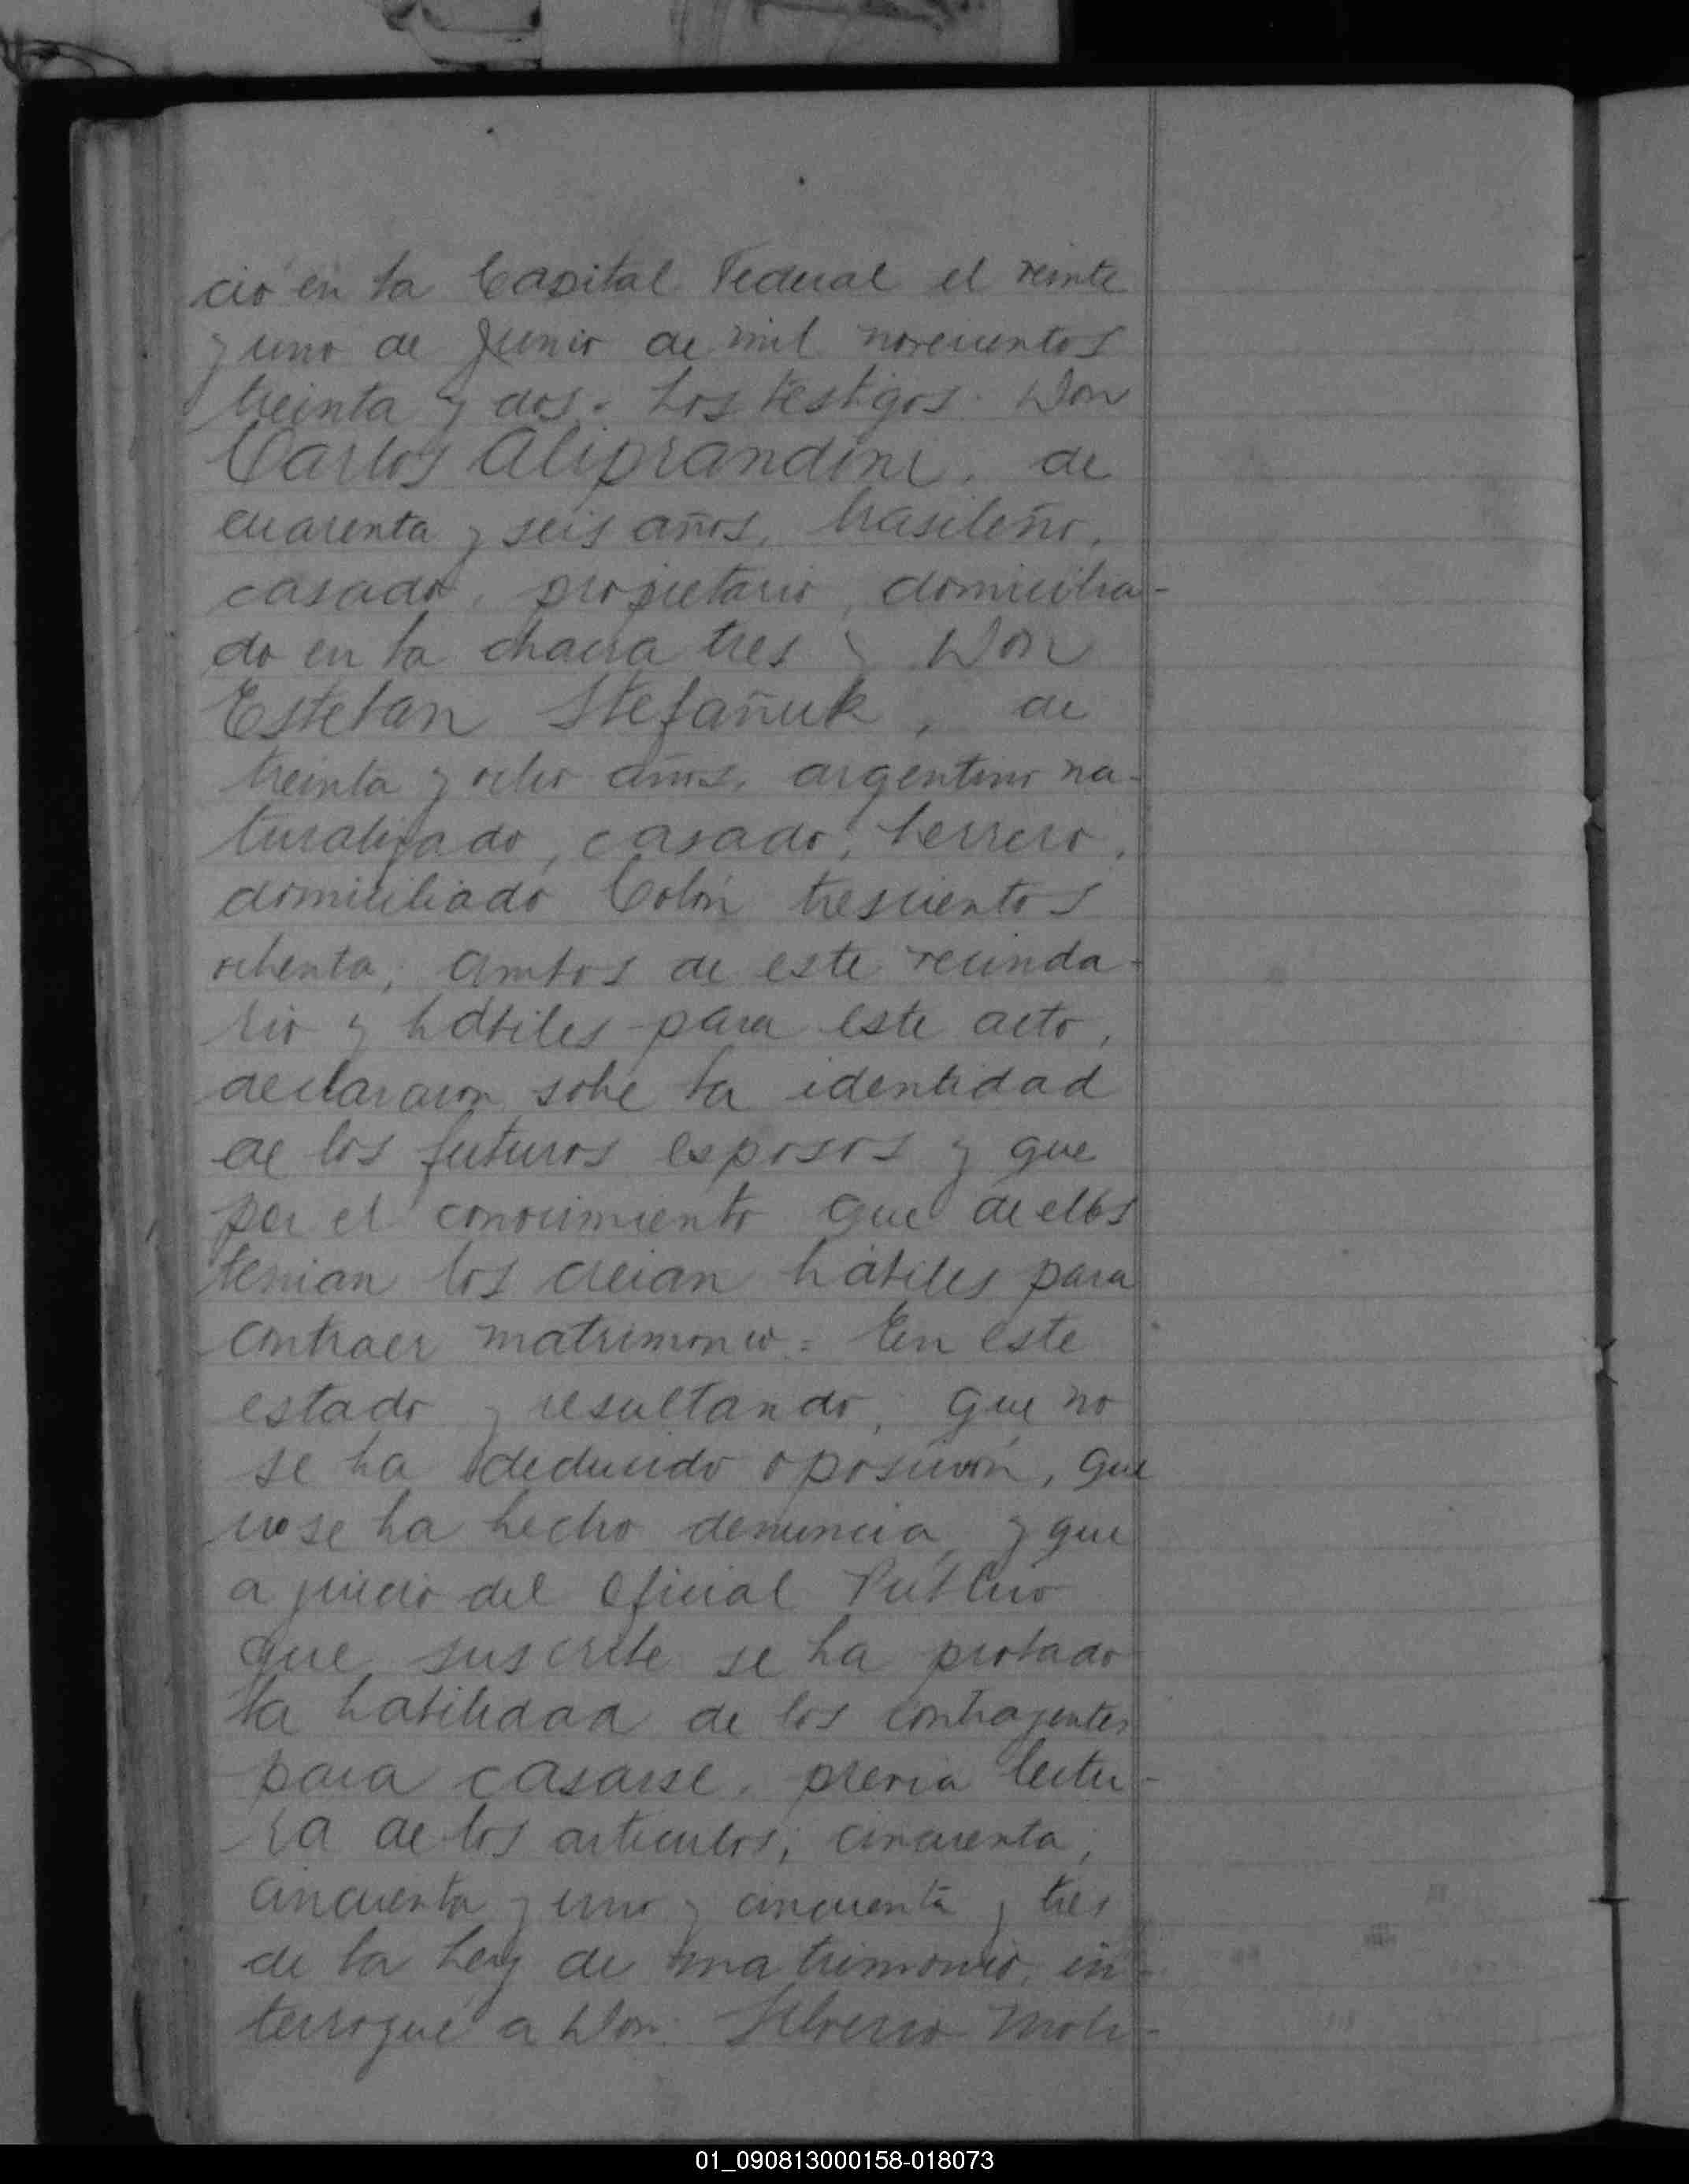 ció en la Capital Federal el veinte
y uno de Junio de mil novecientos
treinta y dos. Los testigos. Don
Carlos Aliprandini, de
cuarenta y seis años, brasileño,
casado, propietario, domicilia-
do en la chacra tres y Don
Esteban Stefañuk, de
treinta y ocho años, argentino na-
turalizado, casado, herrero,
domiciliado Colón trescientos
ochenta, ambos de este vecinda-
rio y hábiles para este acto,
declararon sobre la identidad
de los futuros esposos y que
por el conocimiento que de ellos
tenian los creian hábiles para
contraer matrimonio = En este
estado y resultando, que no
se ha deducido oposición, que
no se ha hecho denuncia y que
a juicio del Oficial Público
que suscribe se ha probado
la habilidad de los contrayentes
para casarse, previa lectu-
ra de los articulos, cincuenta,
cincuenta y uno y cincuenta y tres
de la Ley de matrimonio, in-
terrogué a Don Silverio Moli-
01_090813000158-018073